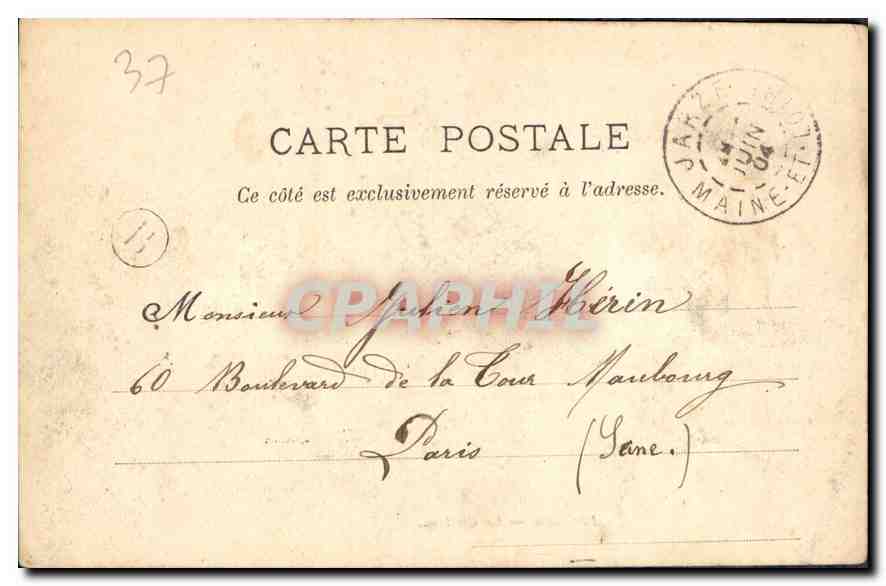 37
CARTE POSTALE
Ce côté est exclusivement réservé à l'adresse.
JARZÉ MAINE-ET-L
JUIN
04
CPAPHIL
Monsieur Julien Hérin
60 Boulevard de la Tour Maubourg
Paris (Seine.)